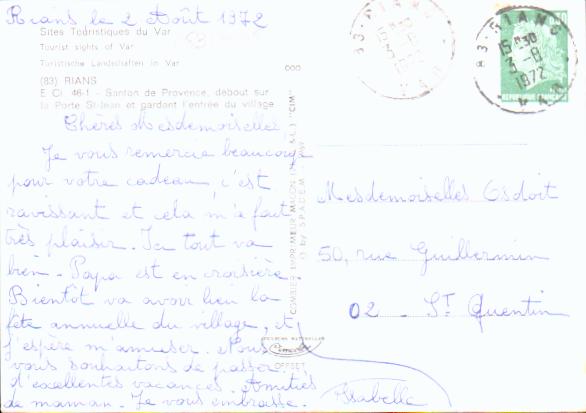 Rians le 2 Août 1972
Sites Touristiques du Var
Tourist sights of Var
Turistische Landschaften in Var
(83) RIANS
E. Cl. 46-1 - Santon de Provence, debout sur
la Porte St-Jean et gardant l'entrée du village
Chères Mesdemoiselles
Je vous remercie beaucoup
pour votre cadeau, c'est
ravissant et cela m'a fait
très plaisir. Ici tout va
bien. Papa est en croisière
Bientôt va avoir lieu la
fête annuelle du village, et
j'espère m'amuser. Nous
vous souhaitons de passer
d'excellentes vacances. Amitiés
de maman. Je vous embrasse.
Isabelle
COMBIER IMPRIMEUR MACON "CIM"
by SPADEM
OFFSET
83 RIANS
15H30
3-8
1972
VAR
Mesdemoiselles Esdoit
50, rue Guillermin
02 - ST Quentin